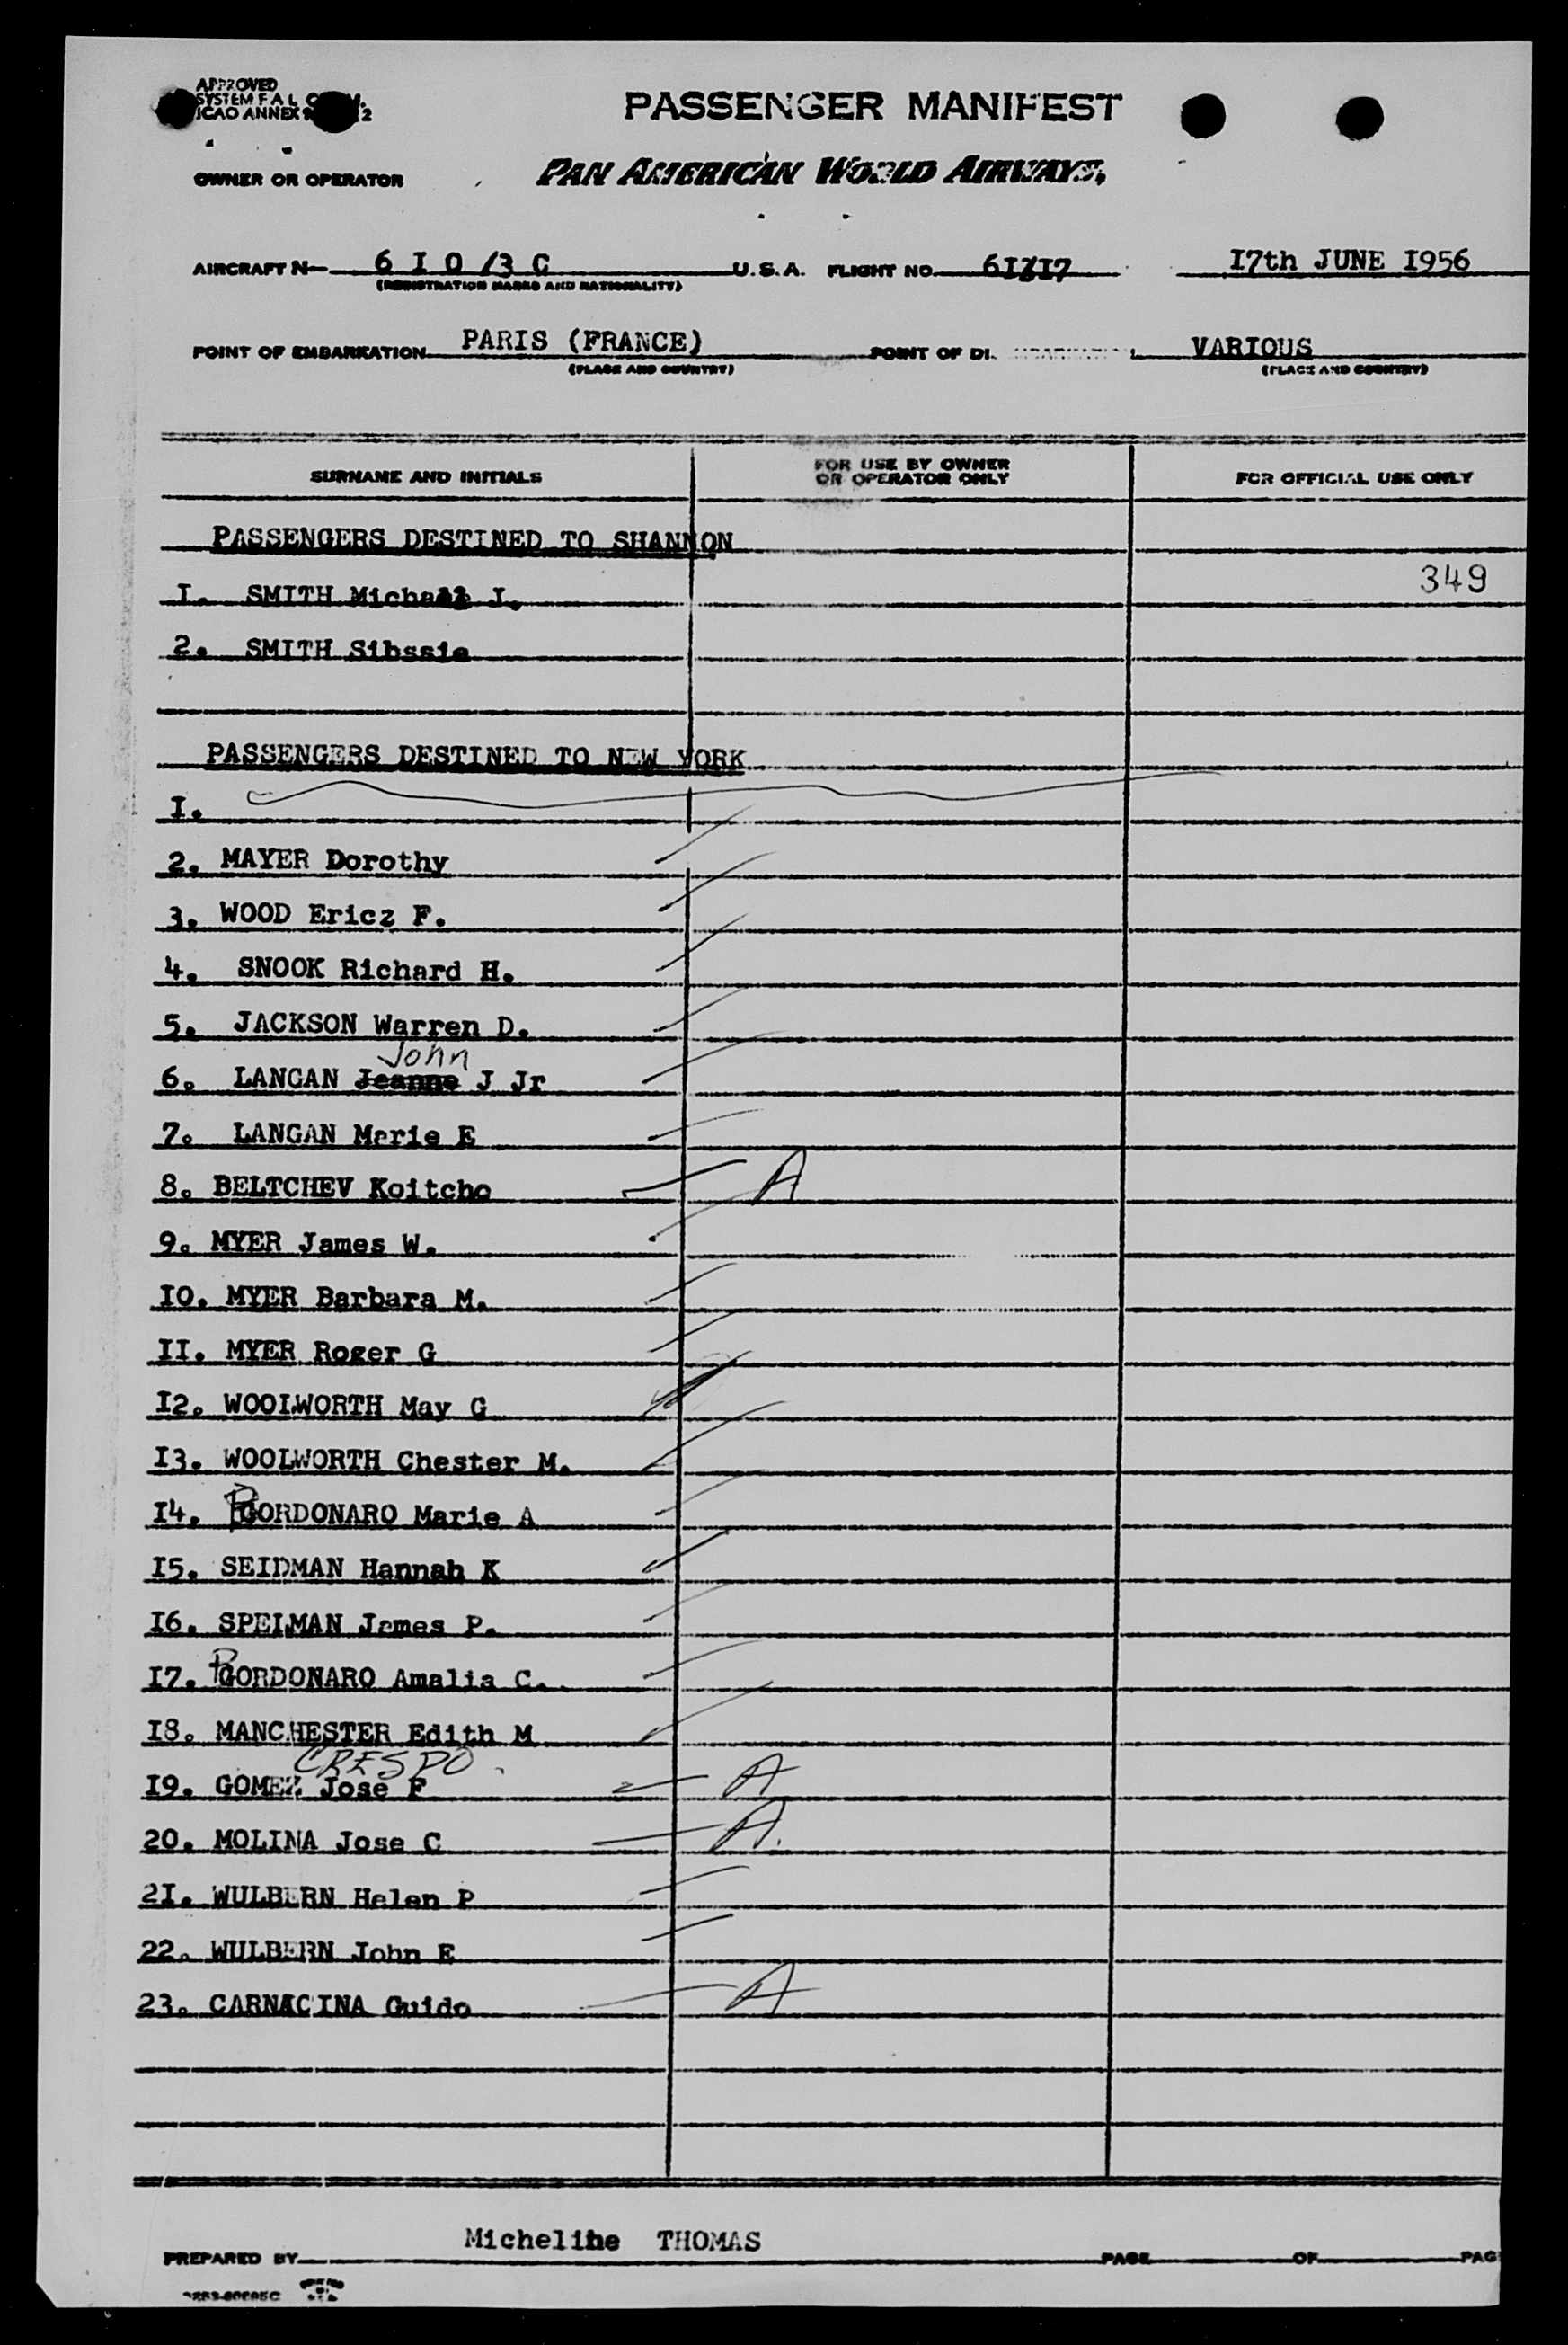 APPROVED
SYSTEM F A L
ICAO ANNEX
PASSENGER MANIFEST
OWNER OR OPERATOR
PAN AMERICAN WORLD AIRWAYS,
AIRCRAFT N 6 I 0 /3 C U.S.A. FLIGHT NO. 17th JUNE 1956
(REGISTRATION MARKS AND NATIONALITY)
POINT OF EMBARKATION PARIS (FRANCE) POINT OF VARIOUS
(PLACE AND COUNTRY) (PLACE AND COUNTRY)
SURNAME AND INITIALS FOR USE BY OWNER OR OPERATOR ONLY FOR OFFICIAL USE ONLY
PASSENGERS DESTINED TO SHANNON
349
I. SMITH J.
2. SMITH Sibssie
PASSENGERS DESTINED TO NEW YORK
I.
2. MAYER Dorothy
3. WOOD Ericz F.
4. SNOOK Richard H.
5. JACKSON Warren D.
John
6. LANGAN Jeanne J Jr
7. LANGAN Marie E
8. BELTCHEV Koitcho A
9. MYER James W.
I0. MYER Barbara M.
II. MYER Roger G
I2. WOOLWORTH May G
I3. WOOLWORTH Chester M.
I4. GORDONARO Marie A
I5. SEIDMAN Hannah K
I6. SPELMAN James P.
I7. GORDONARO Amalia C.
I8. MANCHESTER Edith M
CRESPO
I9. GOMEZ Jose F A
20. MOLINA Jose C A.
2I. WULBERN Helen P
22. WULBERN John E
23. CARNACINA Guido A
PREPARED BY Micheline THOMAS PAGE OF PAG